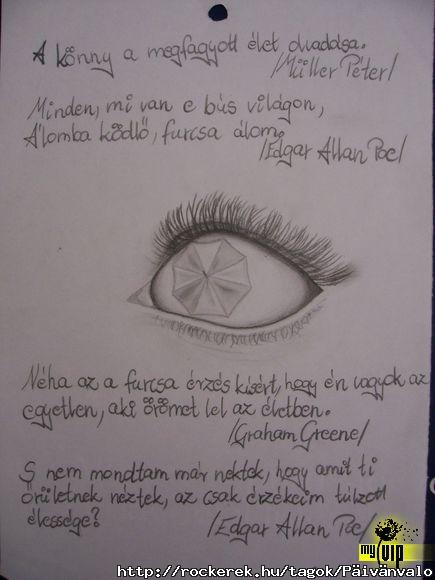 A könny a megfagyott élet olvadása.
/Müller Péter/
Minden, mi van e bús világon,
Álomba ködlő, furcsa álom.
/Edgar Allan Poe/
Néha az a furcsa érzés kísért, hogy én vagyok az
egyetlen, aki örömet lel az életben.
/Graham Greene/
S nem mondtam már nektek, hogy amit ti
őrületnek néztek, az csak érzékeim túlzott
élessége?
/Edgar Allan Poe/
my VIP
http://rockerek.hu/tagok/Päivänvalo